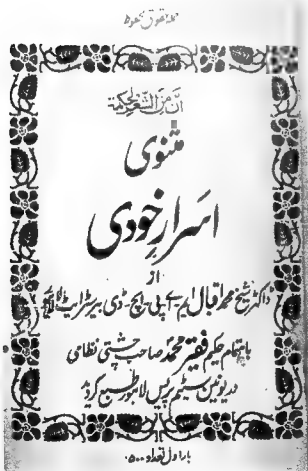 ان من الشعر لحکمة
مثنوی
اسرار خودی
از
ڈاکٹر شیخ محمد اقبال ایم اے پی ایچ ڈی بیرسٹرایٹ لا لاہور
باہتمام حکیم فقیر محمد صاحب چشتی نظامی
در یونین سٹیم پریس لاہور طبع گردید
بار اول تعداد ۵۰۰